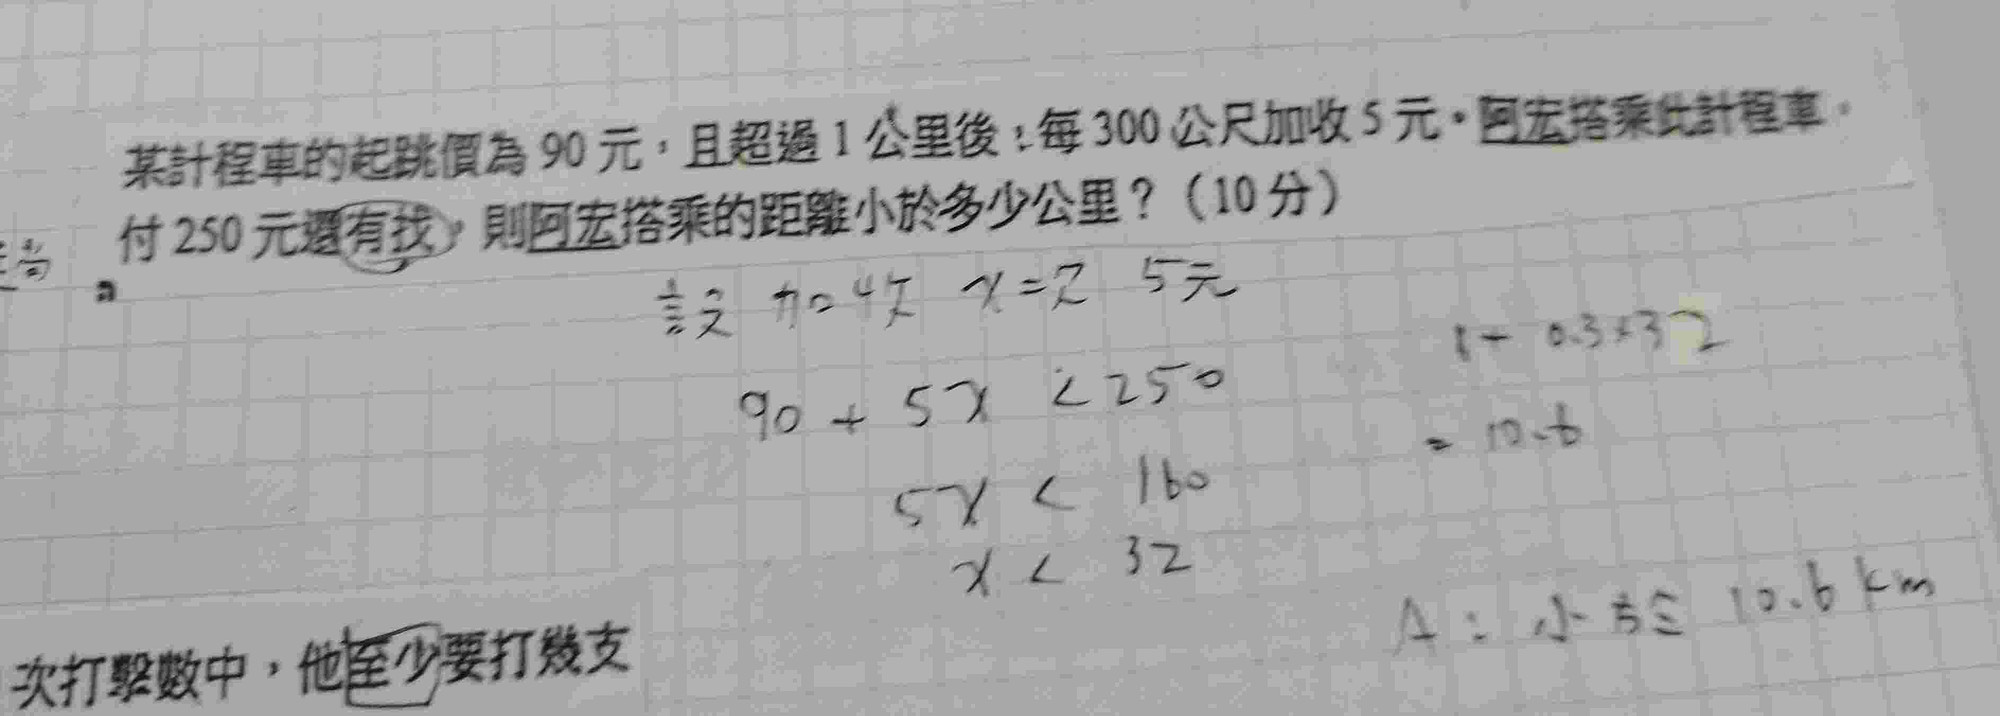 某計程車的起跳價為 90 元，且超過 1 公里後，每 300 公尺加收 5 元。阿宏搭乘此計程車，
付 250 元還有找，則阿宏搭乘的距離小於多少公里？（10 分）
設 加收 x = 2 5元
90 + 5x < 250
5x < 160
x < 32
1 + 0.3 × 32
= 10.6
A : 小於 10.6 km
次打擊數中，他至少要打幾支